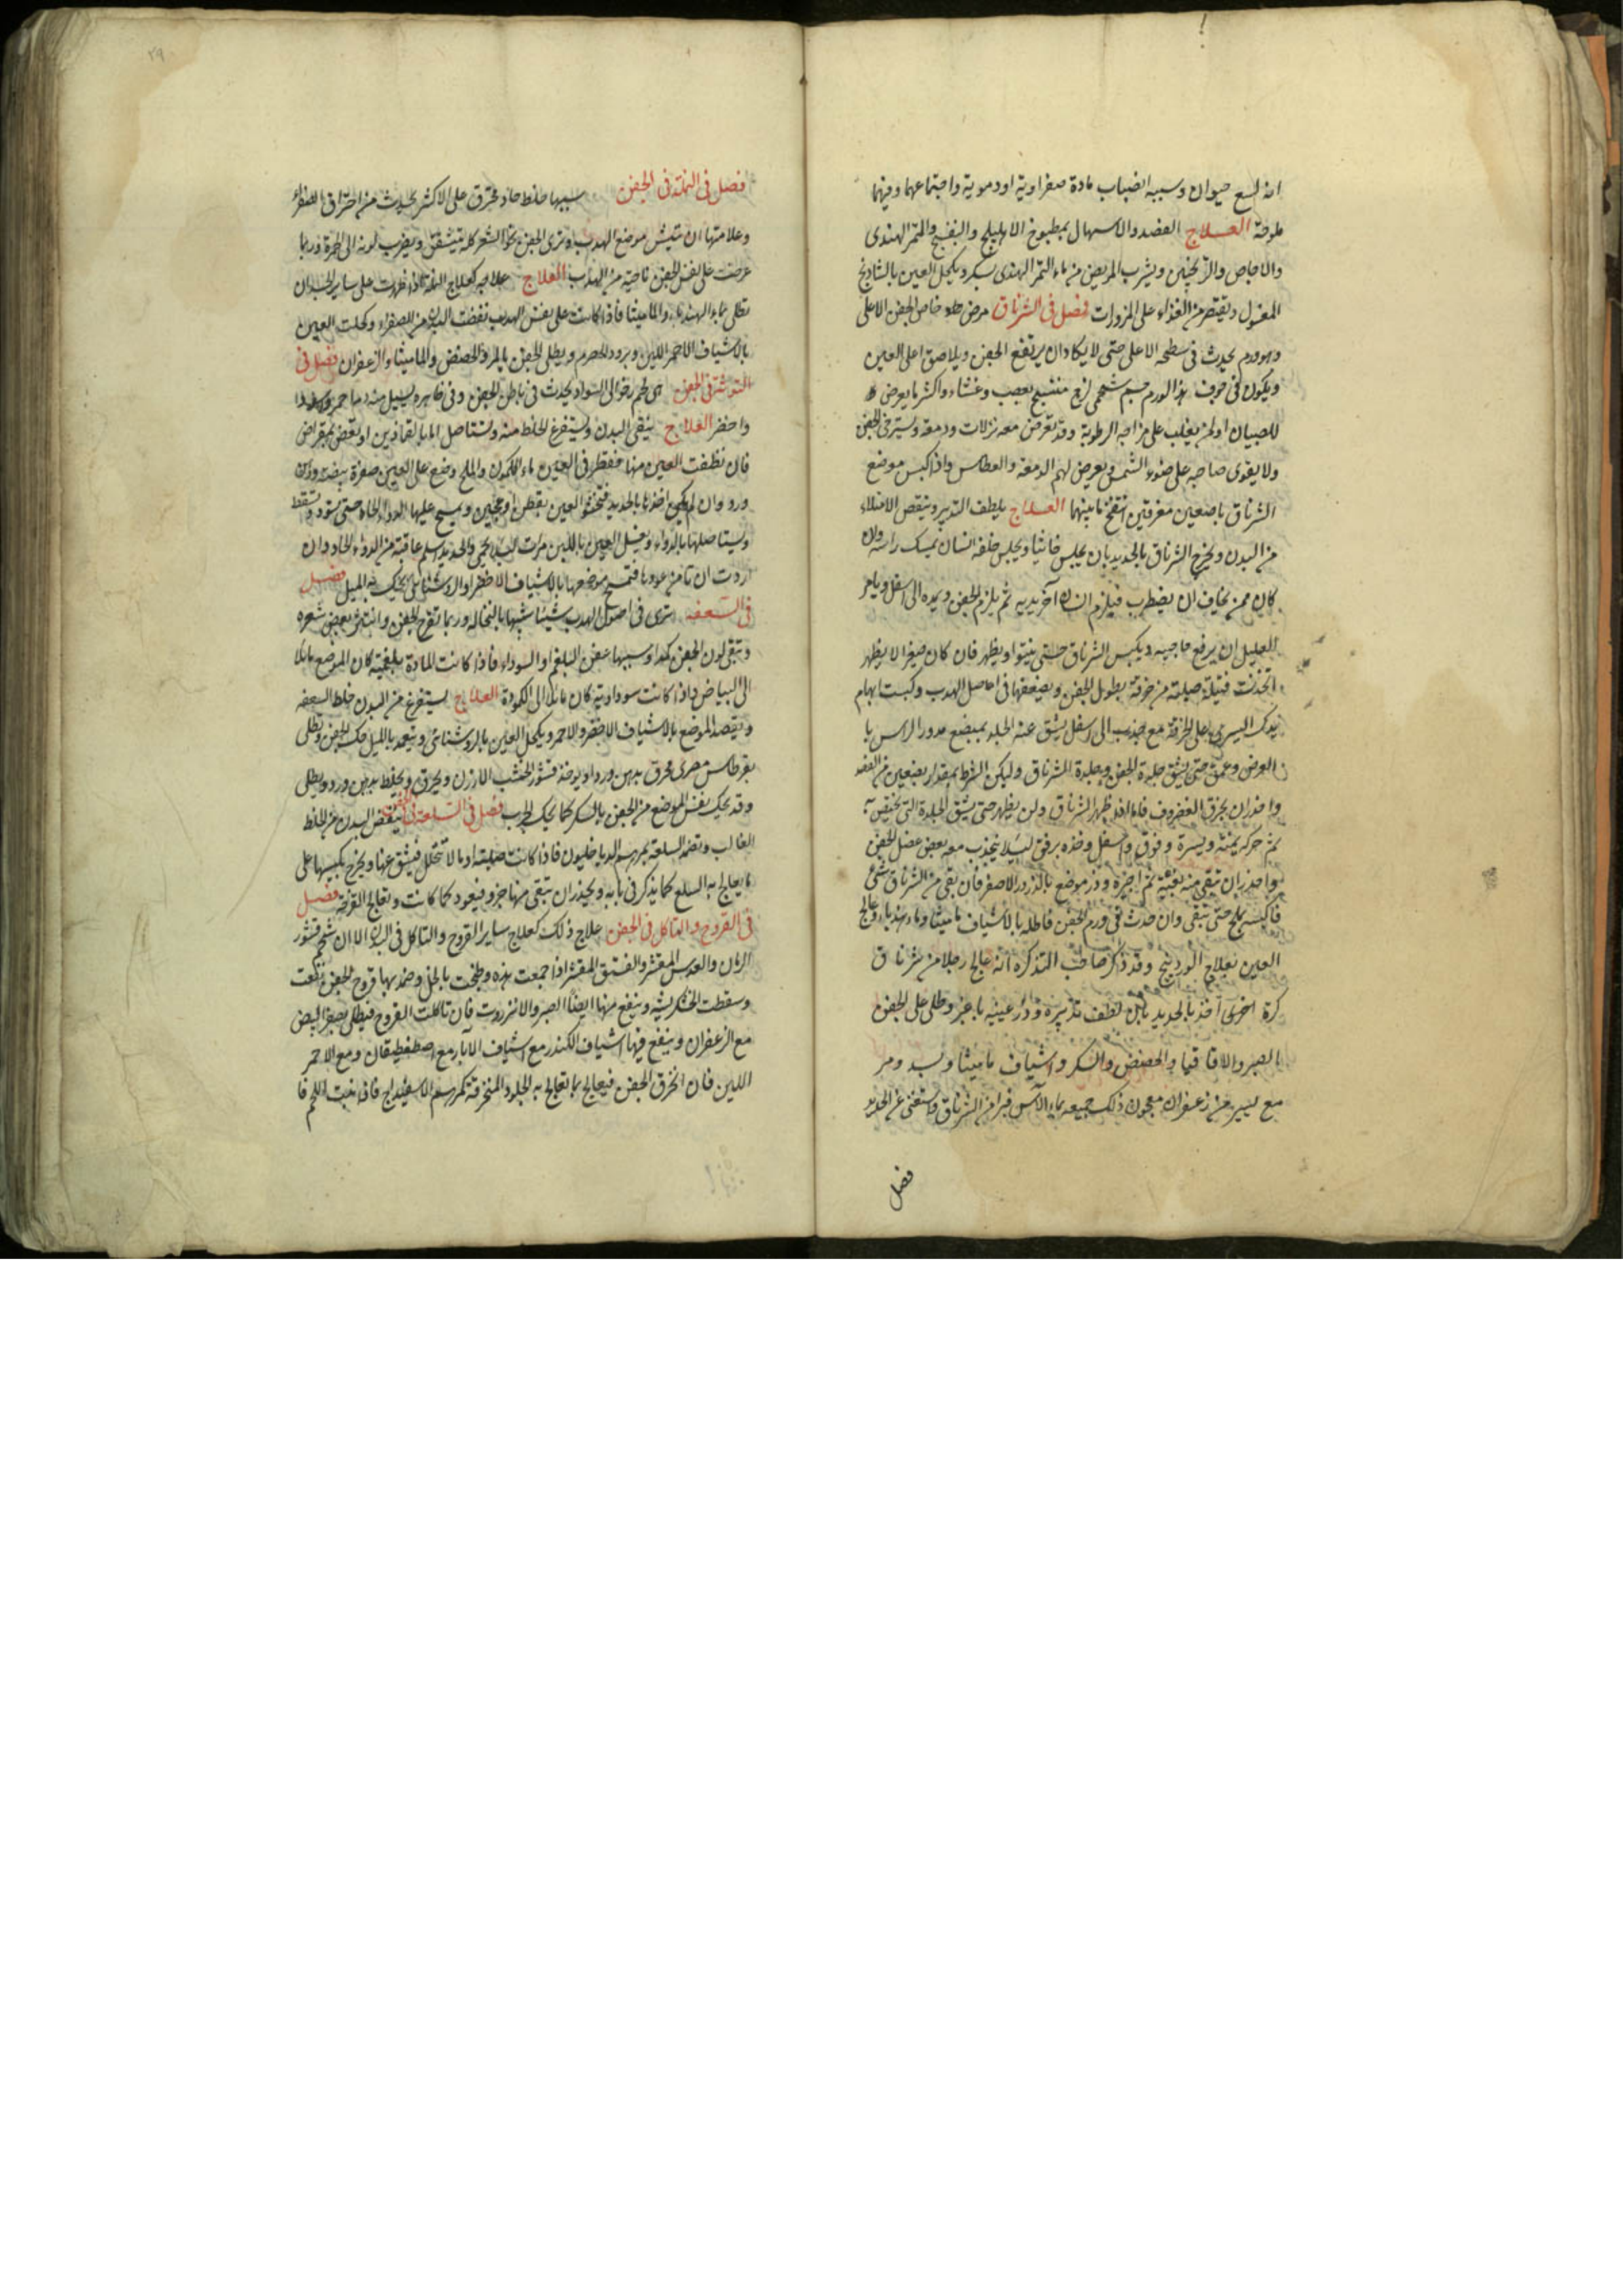 انه لسع حيوان وسببه انصباب مادة صفراوية او دموية واجتماعها وفيهما
ملوحة العلاج الفصد والاسهال بمطبوخ الاهليلج والبنفسج والتمر الهندى
والاجاص والترنجبين ويشرب المريض من ماء التمر الهندى بسكر ويكحل العين بالشاذنج
المغسول ويقتصر من الغذاء على المزورات فصل فى الشرناق مرض خاص الجفن الاعلى
وهو ورم يحدث فى سطحه الاعلى حتى لا يكاد ان يرتفع الجفن ويلاصق اعلى العين
ويكون فى جوف هذا الورم جسم شحمى لزج منتسج بعصب وغشاء واكثر ما يعرض
للصبيان او لمن يغلب على مزاجه الرطوبة وقد تعرض معه نزلات ودمعة ويسترخى الجفن
ولا يقوى صاحبه على ضوء الشمس ويعرض لهم الدمعة والعطاس واذا كبس موضع
الشرناق باصبعين مفرقتين انتفخ ما بينهما العلاج يلطف التدبير وينقص الامتلاء
من البدن ويخرج الشرناق بالحديد بان يجلس ويجلس خلفه انسان يمسك راسه وان
كان ممن يخاف ان يضطرب فيلزم انسان آخر يديه ثم يلزم الجفن ويمده الى اسفل ويامر
العليل ان يرفع حاجبيه ويكبس الشرناق حتى ينتوا ويظهر فان كان صغيرا لا يظهر
اتخذت فتيلة صلبة من خرقة بطول الجفن ويضعها فى اصل الهدب وكبست ابهام
يدك اليسرى على الخرقة مع جذب الى اسفل يشق عنه الجلد بمبضع مدور الراس با
العرض وعمق حتى يشق جلدة الجفن وجلدة الشرناق وليكن الشرط بمقدار بضعين من الفصد
واحذر ان يخرق الغضروف فاما ظهر الشرناق ولن يظهر حتى يشق الجلدة التى تحتقن به
ثم حركه يمنة ويسرة وفوق واسفل وخذه برفق لئلا ينجذب معه بعض عضل الجفن
واحذر ان تبقى منه بقية ثم اجبره وذر موضع بالذرور الاصفر فان بقى من الشرناق شئ
فاكبسه بملح حتى ينقى وان حدث فى ورم الجفن فاطله بالاشياف ماميثا وماء هندباء وعالج
العين بعلاج الوردينج وقد ذكر صاحب التذكرة انه عالج رجلا من شرناق
كرة اخرى اخذ بالحديد بان لطف تدبيره وذر عينيه باغبر وطلى على الجفن
بالصبر والاقاقيا والحضض والسكر واشياف ماميثا وسد ومر
مع يسير من زعفران معجون ذلك جميعه بماء الآس فبرا من الشرناق واستغنى عن الحديد
فصل
٢٩
فصل فى النملة فى الجفن سببها خلط حاد محترق على الاكثر يحدث من احتراق الصفراء
وعلامتها ان موضع الهدب وترى الجفن نحو الشعر كله يتشقق ويضرب لونه الى الحمرة وربما
عرضت على نفس الجفن ناحية من الهدب العلاج علاجه كعلاج النملة اذا ظهرت على سائر الجسد ان
تطلى بماء الهندباء والماميثا فاذا كانت على نفس الهدب نفضت البدن من الصفراء وكحلت العين
بالاشياف الاحمر اللين وبرود الحصرم ويطلى الجفن بالمر والحضض والماميثا والزعفران فصل فى
التوثة فى الجفن هى لحم رخو الى السواد يحدث فى باطن الجفن وفى ظاهره يسيل منه دما احمر واسودا
واخضر العلاج ينقى البدن ويستفرغ الخلط منه وتستاصل اما بالقمادين او تقص بمقراض
فان نظفت العين منها فقطر فى العين ماء الكمون والملح وضع على العين صفرة بيضة ودهن
ورد وان لم يمكن اخذها بالحديد فتحفظ العين بقطن او عجين ويمسح عليها الدواء الحاد حتى يسود ويسقط
ويستاصلها بالدواء وغسل العين باللبن مرات لئلا يحمى والحديد اسلم عاقبة من الدواء الحاد وان
اردت ان تامن عودها فتمسح موضعها بالاشياف الاخضر او الروشنائى يحك به الميل فصل
فى السعفة ترى فى اصول الهدب شيئا شبيها بالنخالة وربما تقرح الجفن وانتثر بعض شعره
وتبقى لون الجفن كمدا وسببها عفن البلغم او السوداء فاذا كانت المادة بلغمية كان الموضع مايلا
الى البياض واذا كانت سوداوية كان مايلا الى الكمودة العلاج يستفرغ من البدن خلط السعفه
ويقصد الموضع بالاشياف الاخضر والاحمر ويكحل العين بالروشنائى ويتعمد بالليل حك الجفن ويطلى
بقرطاس مصرى محرق بدهن ورد او يوخذ قشور الخشب الارزن ويحرق ويخلط بدهن ورد ويطلى
وقد يحك نفس الموضع من الجفن بالسكر كما يحك الجرب فصل فى السلعة فى الجفن ينقض البدن من الخلط
الغالب وتضمد السلعة بمرهم الدياخليون فاذا كانت صلبة او ما لا تتحلل فيشق عنها ويخرج بكيسها على
ما يعالج به السلع كما يذكر فى بابه ويحذر ان تبقى منها جزو فيعود كما كانت وتعالج القرحة فصل
فى القروح والتاكل فى الجفن علاج ذلك كعلاج ساير القروح والتاكل فى البدن الا ان شحم قشور
الرمان والعدس المقشر والفستق المقشر اذا جمعت هذه وطبخت بالخل وضمد بها قروح الجفن نفعت
وسقطت الخشكريشة وينفع منها ايضا الصبر والانزروت فان تاكلت القروح فيطلى بصفرة البيض
مع الزعفران وينفع فيها اشياف الكندر مع اشياف الآبار مع اصطفطيقان ومع الاحمر
اللين فان انخرق الجفن فيعالج بما تعالج به الجلود المنخرقة كمرهم الاسفيداج فانه ينبت اللحم فا